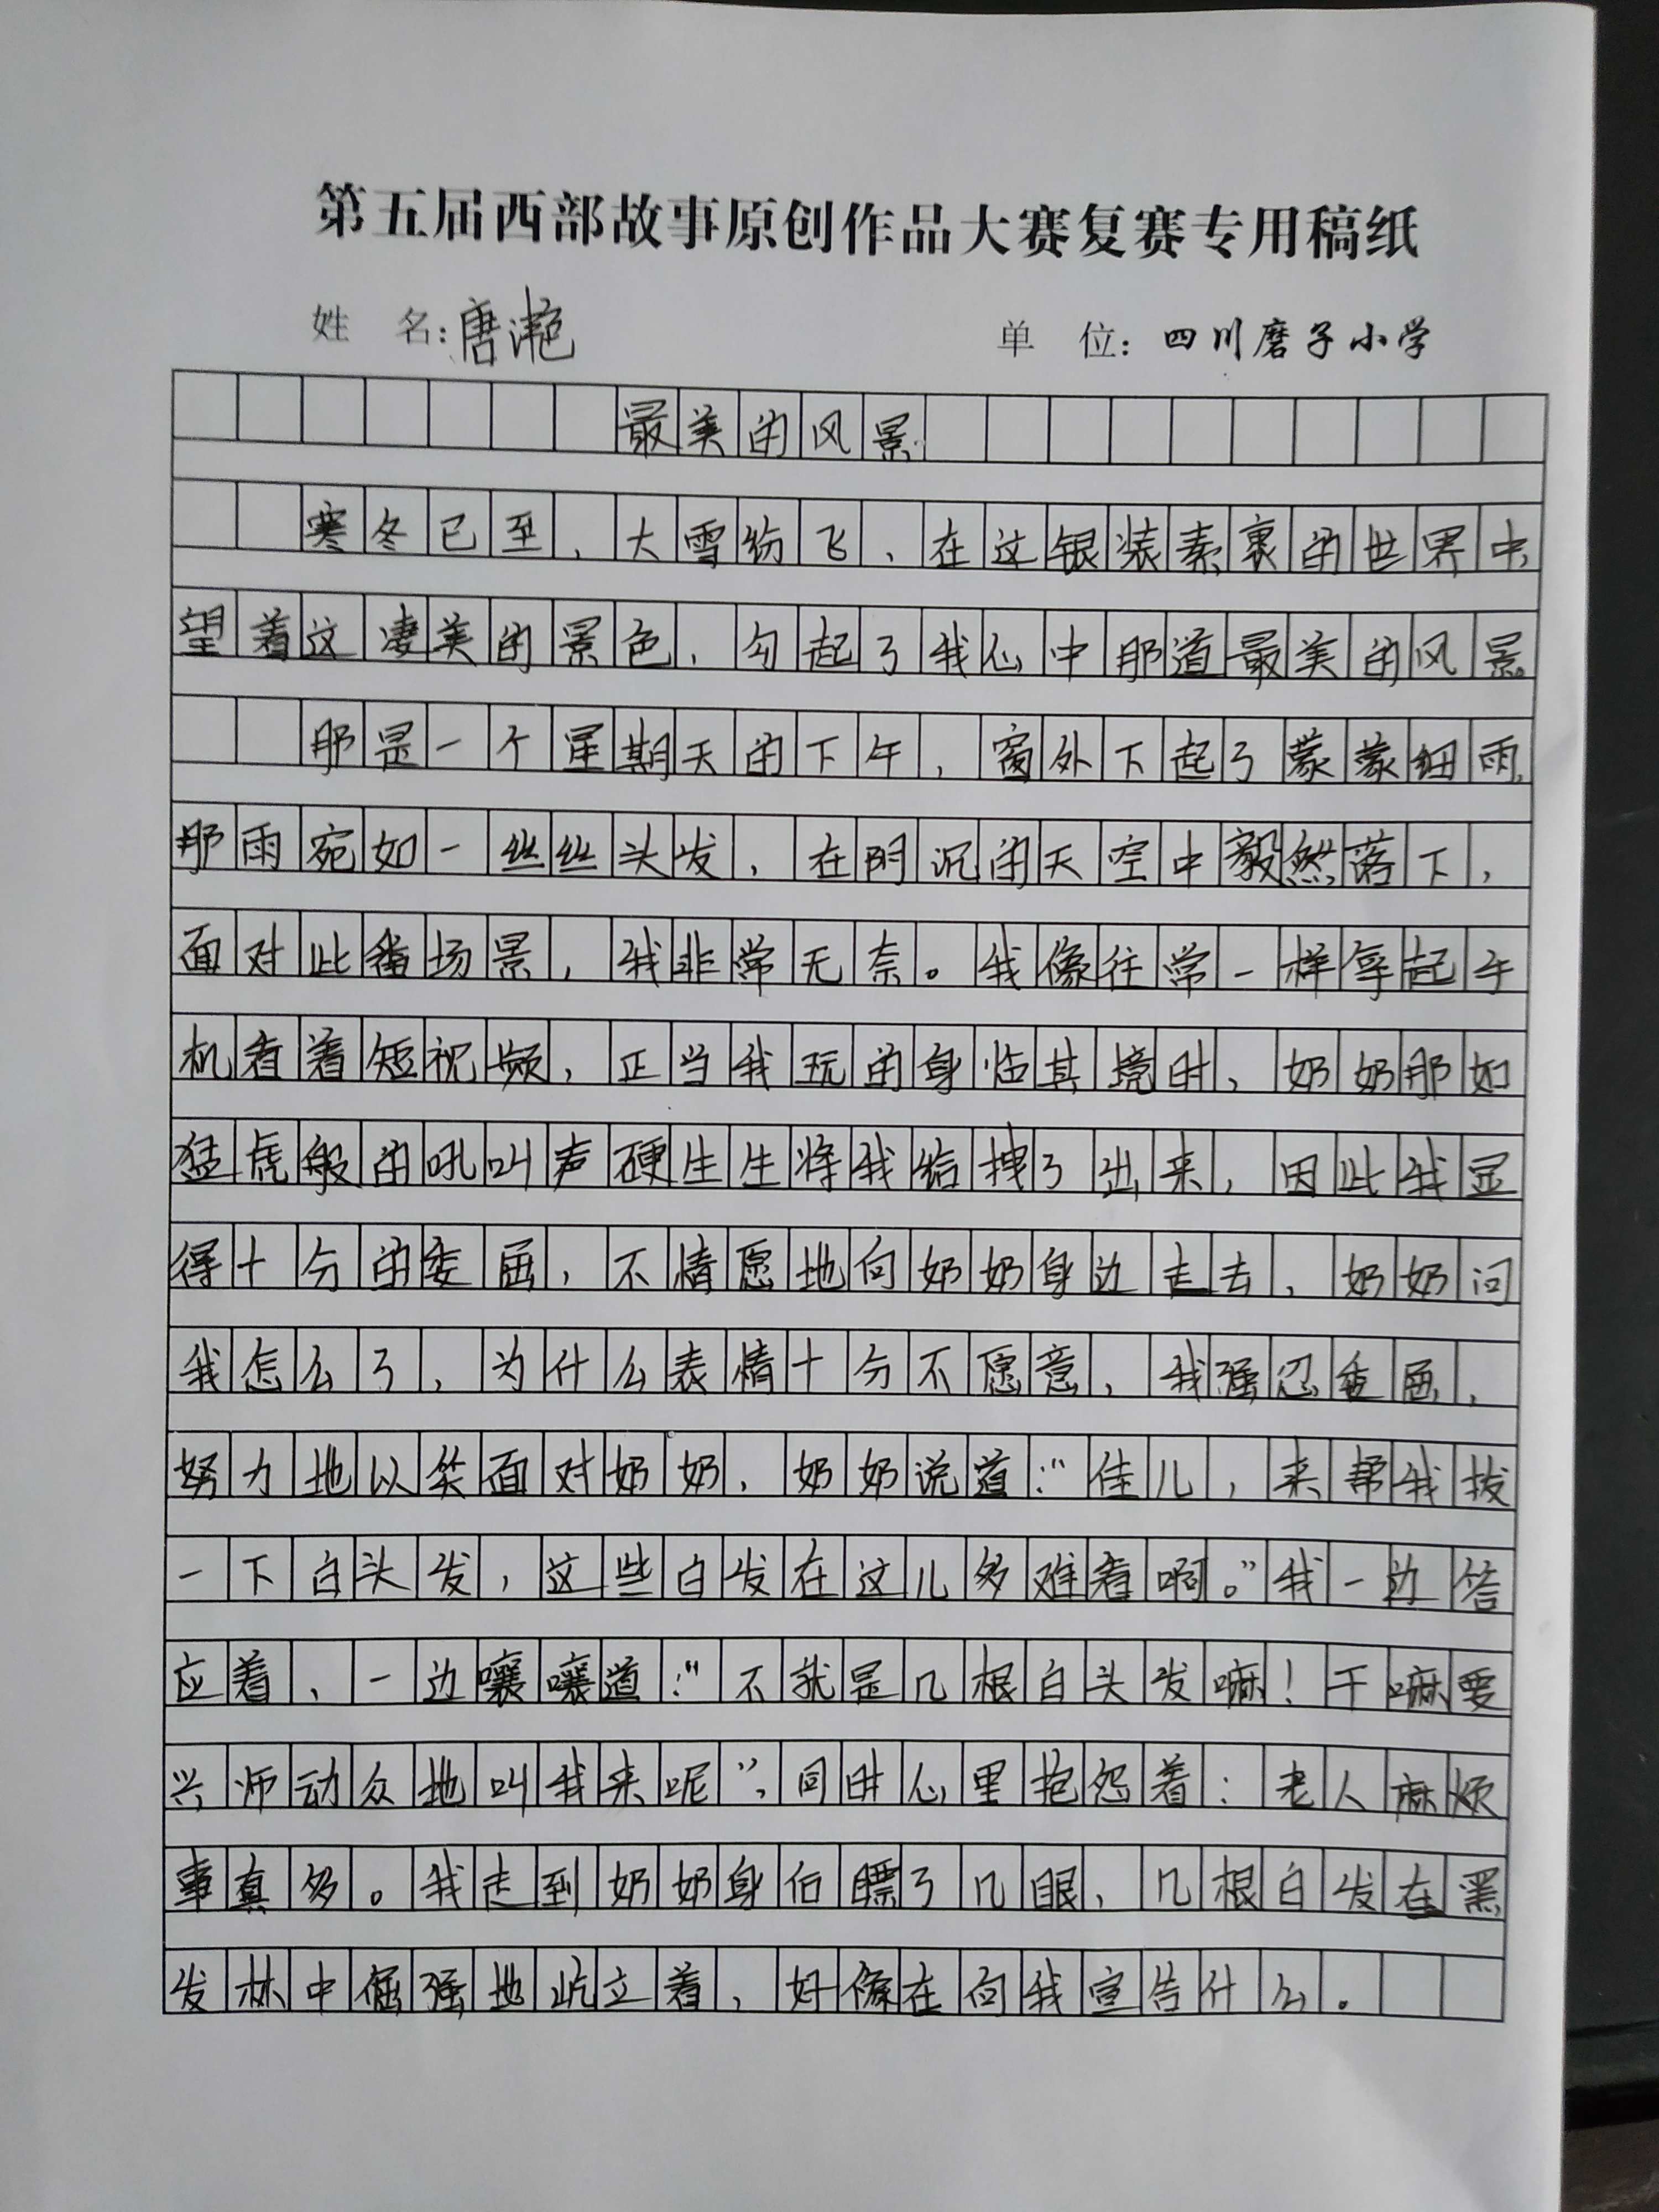 第五届西部故事原创作品大赛复赛专用稿纸
姓 名:唐滟 单 位:四川磨子小学
最美的风景
寒冬已至,大雪纷飞,在这银装素裹的世界中,
望着这凄美的景色,勾起了我心中那道最美的风景。
那是一个星期天的下午,窗外下起了蒙蒙细雨,
那雨宛如一丝丝头发,在阴沉的天空中毅然落下,
面对此番场景,我非常无奈。我像往常一样拿起手
机看着短视频,正当我玩的身临其境时,奶奶那如
猛虎般的吼叫声硬生生将我给拽了出来,因此我显
得十分的委屈,不情愿地向奶奶身边走去,奶奶问
我怎么了,为什么表情十分不愿意,我强忍委屈,
努力地以笑面对奶奶,奶奶说道:“佳儿,来帮我拔
一下白头发,这些白发在这儿多难看啊。”我一边答
应着,一边嚷嚷道:“不就是几根白头发嘛!干嘛要
兴师动众地叫我来呢”,同时心里抱怨着:老人麻烦
事真多。我走到奶奶身后瞟了几眼,几根白发在黑
发林中倔强地屹立着,好像在向我宣告什么。